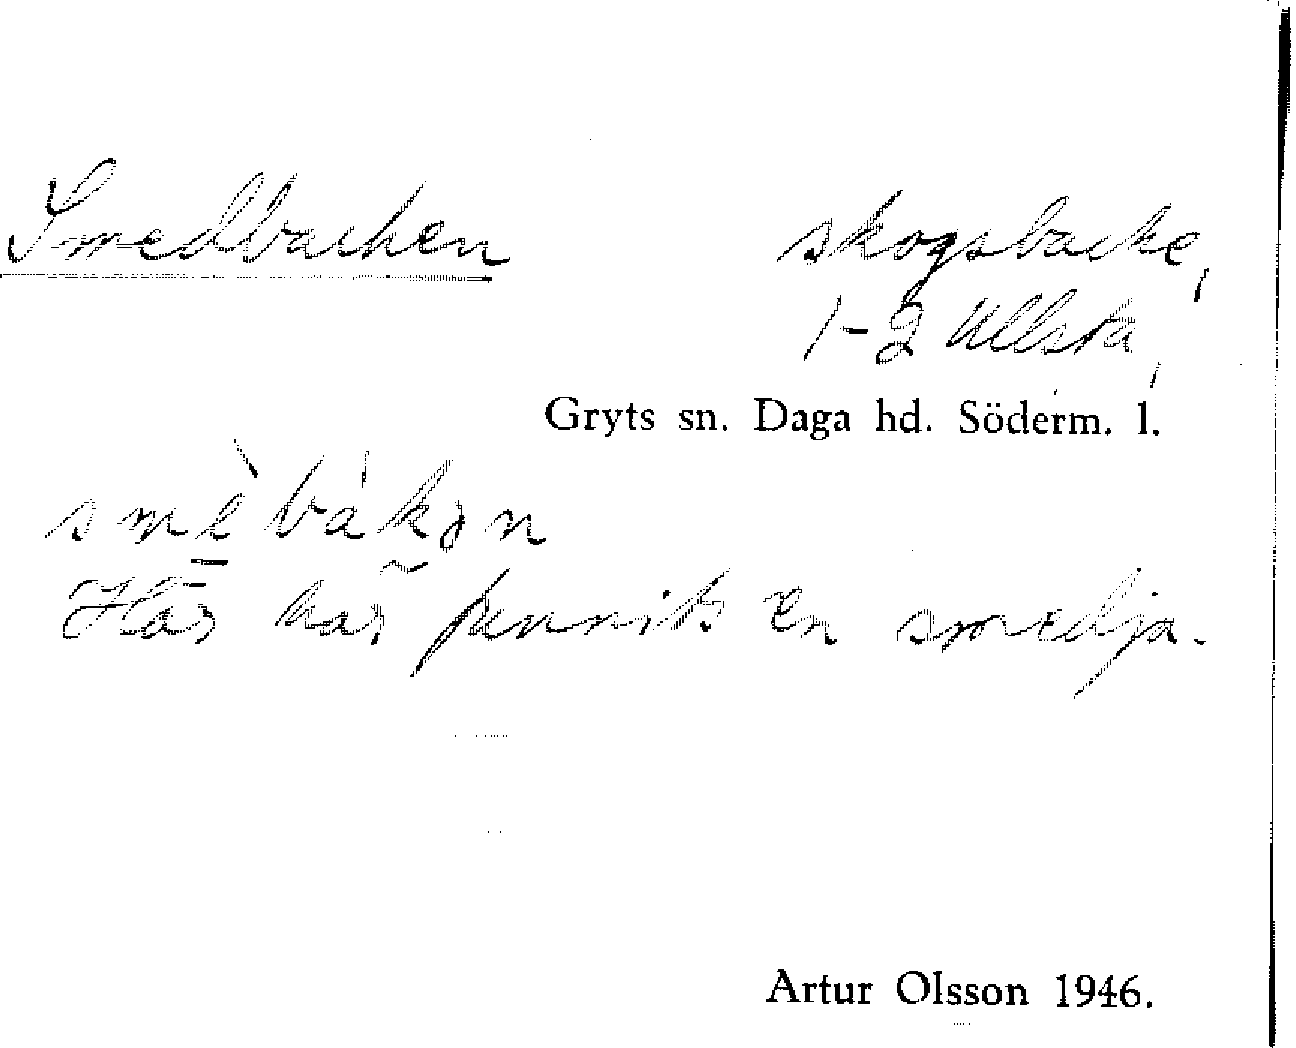 Smedbacken
skogsbacke,
1-2 Ullsta,
Gryts sn. Daga hd. Söderm. l.
smèbákən
Här har funnits en smedja.
Artur Olsson 1946.